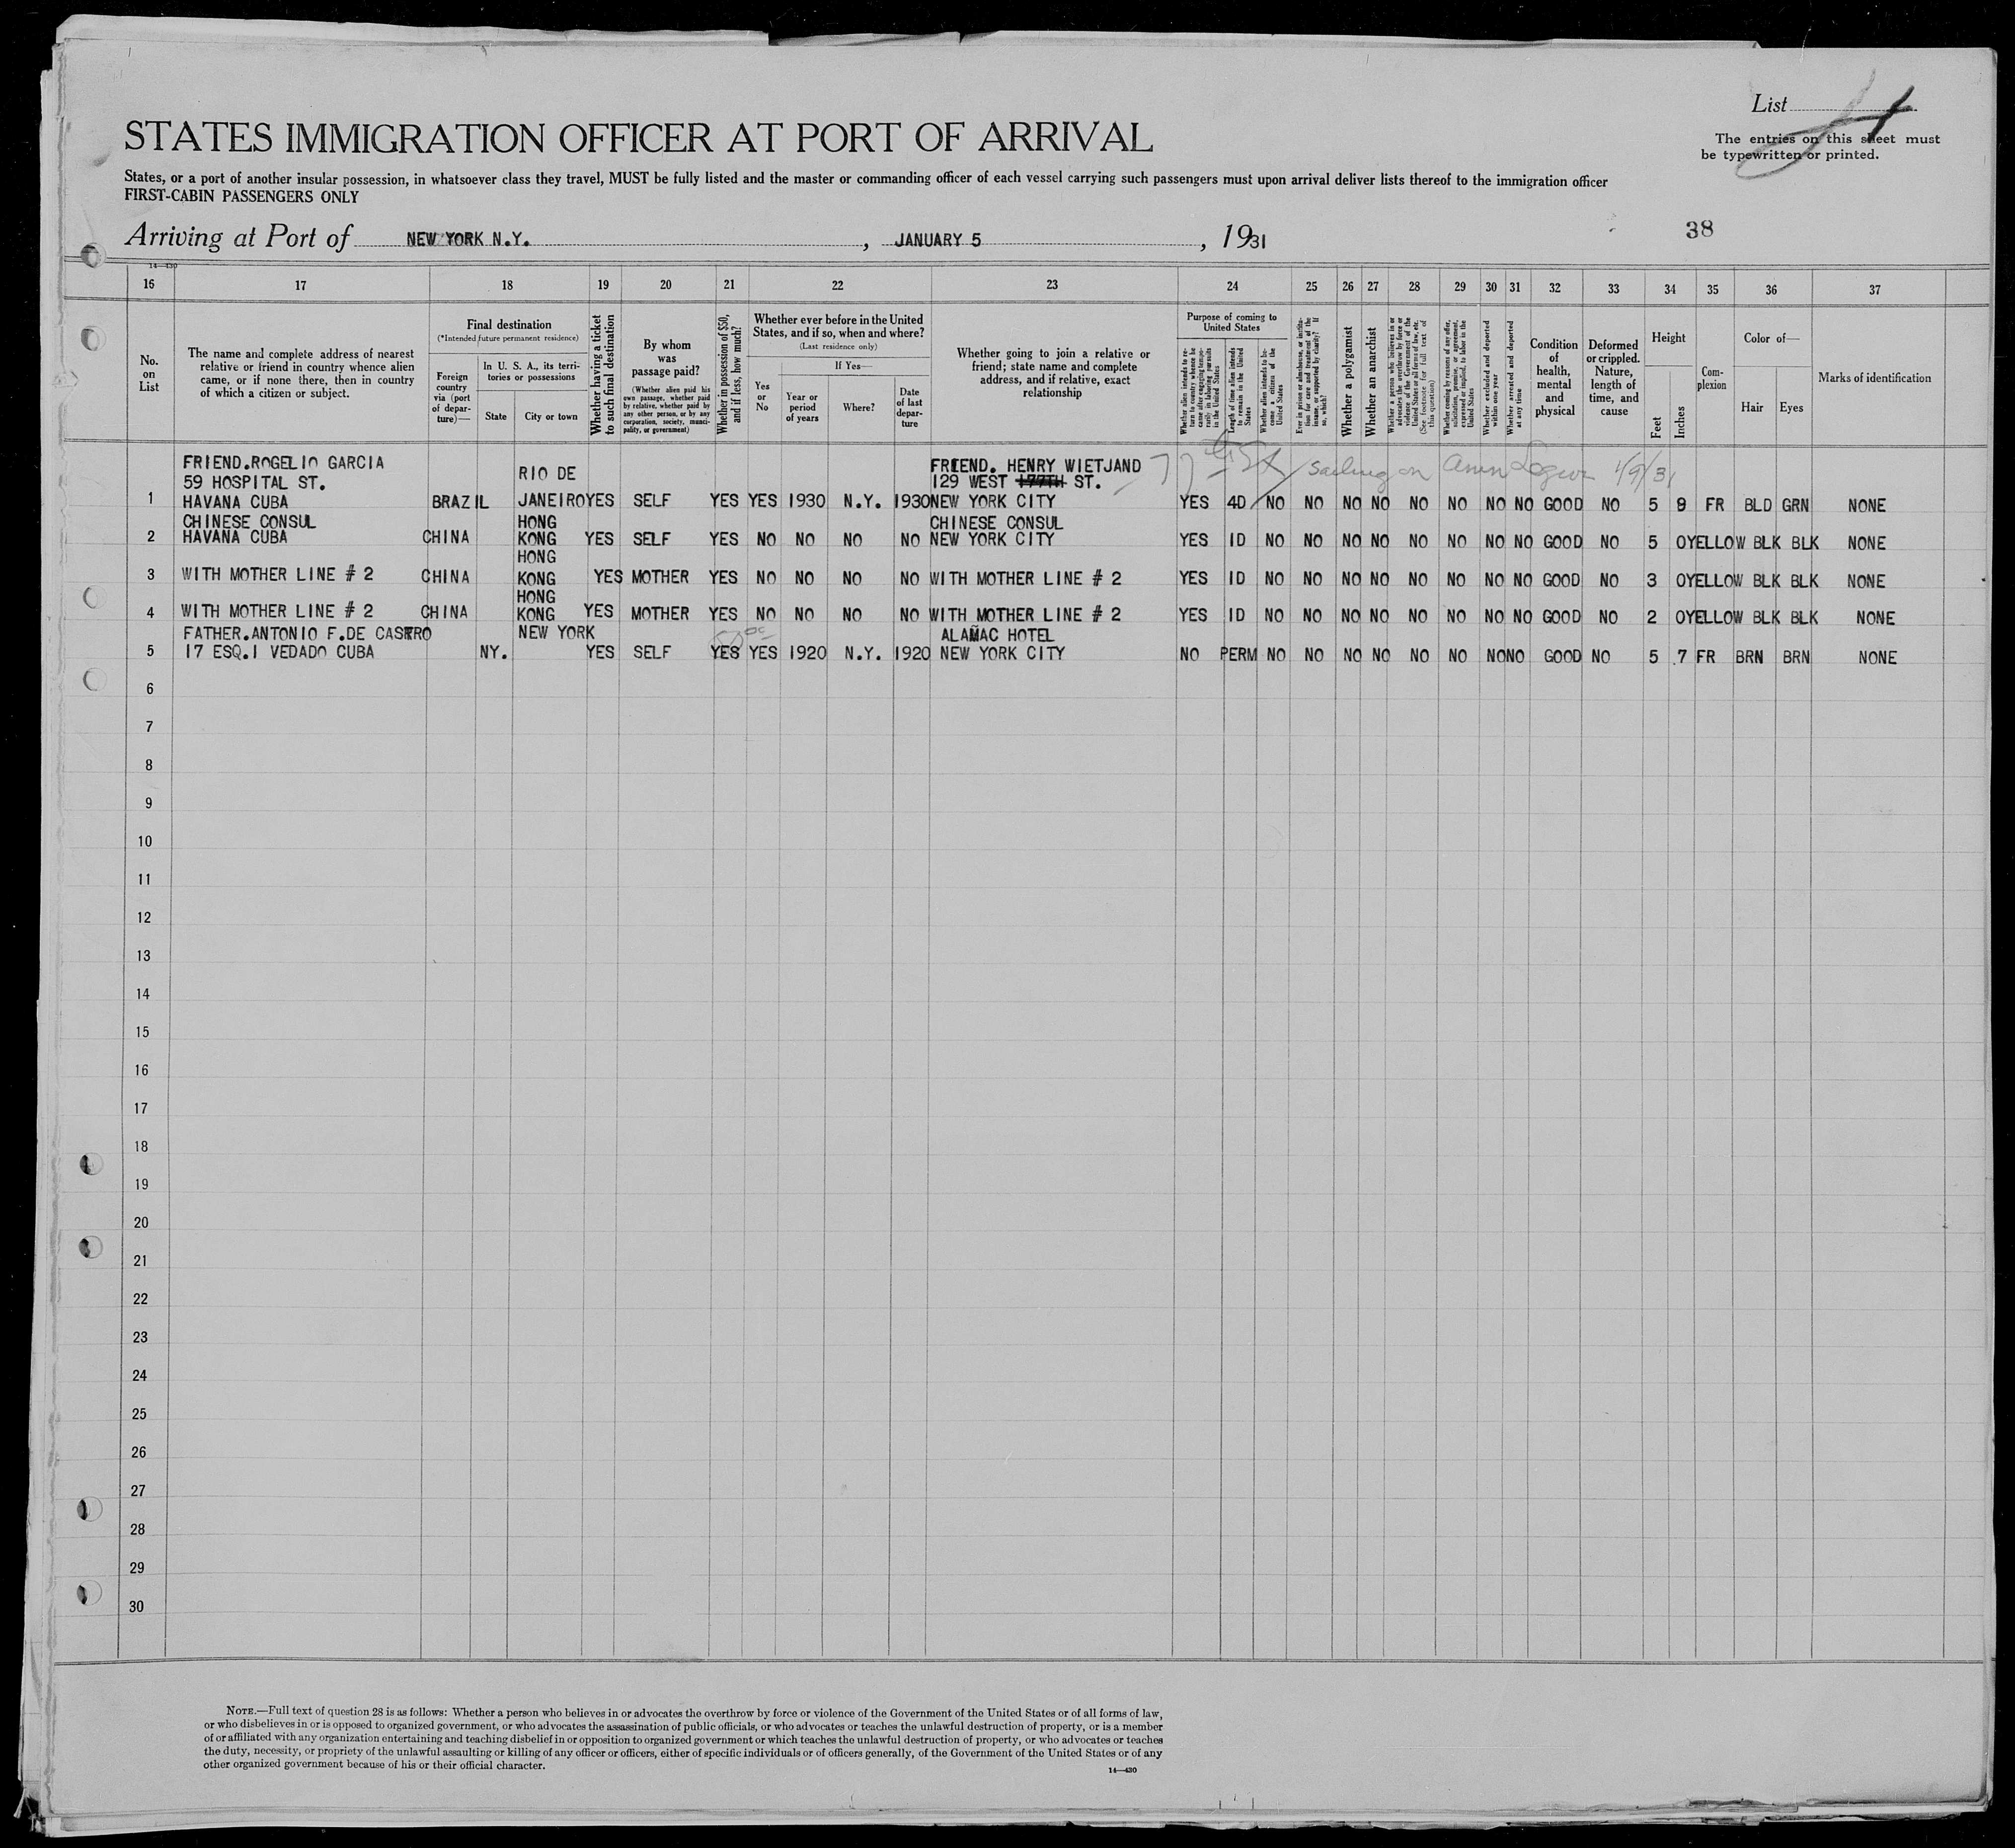 List
The entries on this sheet must
be typewritten or printed.
STATES IMMIGRATION OFFICER AT PORT OF ARRIVAL
States, or a port of another insular possession, in whatsoever class they travel, MUST be fully listed and the master or commanding officer of each vessel carrying such passengers must upon arrival deliver lists thereof to the immigration officer
FIRST-CABIN PASSENGERS ONLY
Arriving at Port of NEW YORK N.Y. , JANUARY 5 , 1931
38
14—430
16 17 18 19 20 21 22 23 24 25 26 27 28 29 30 31 32 33 34 35 36 37
No. on List
The name and complete address of nearest relative or friend in country whence alien came, or if none there, then in country of which a citizen or subject.
Final destination
(*Intended future permanent residence)
Foreign country via (port of departure)—
In U. S. A., its territories or possessions
State
City or town
Whether having a ticket to such final destination
By whom was passage paid?
(Whether alien paid his own passage, whether paid by relative, whether paid by any other person, or by any corporation, society, municipality, or government)
Whether in possession of $50, and if less, how much?
Whether ever before in the United States, and if so, when and where?
(Last residence only)
Yes or No
If Yes—
Year or period of years
Where?
Date of last departure
Whether going to join a relative or friend; state name and complete address, and if relative, exact relationship
Purpose of coming to United States
Whether alien intends to return to country whence he came after engaging temporarily in laboring pursuits in the United States
Length of time alien intends to remain in the United States
Whether alien intends to become a citizen of the United States
Ever in prison or almshouse, or institution for care and treatment of the insane, or supported by charity? If so, which?
Whether a polygamist
Whether an anarchist
Whether a person who believes in or advocates the overthrow by force or violence of the Government of the United States or all forms of law, etc. (See footnote for full text of this question)
Whether coming by reason of any offer, solicitation, promise, or agreement, expressed or implied, to labor in the United States
Whether excluded and deported within one year
Whether arrested and deported at any time
Condition of health, mental and physical
Deformed or crippled. Nature, length of time, and cause
Height
Feet
Inches
Complexion
Color of—
Hair
Eyes
Marks of identification
FRIEND.ROGELIO GARCIA FRIEND. HENRY WIETJAND 77 St sailing on 1/9/31
59 HOSPITAL ST. RIO DE 129 WEST 177TH ST.
1 HAVANA CUBA BRAZIL JANEIRO YES SELF YES YES 1930 N.Y. 1930 NEW YORK CITY YES 4D NO NO NO NO NO NO NO NO GOOD NO 5 9 FR BLD GRN NONE
CHINESE CONSUL HONG CHINESE CONSUL
2 HAVANA CUBA CHINA KONG YES SELF YES NO NO NO NO NEW YORK CITY YES 1D NO NO NO NO NO NO NO NO GOOD NO 5 0 YELLOW BLK BLK NONE
HONG
3 WITH MOTHER LINE # 2 CHINA KONG YES MOTHER YES NO NO NO NO WITH MOTHER LINE # 2 YES 1D NO NO NO NO NO NO NO NO GOOD NO 3 0 YELLOW BLK BLK NONE
HONG
4 WITH MOTHER LINE # 2 CHINA KONG YES MOTHER YES NO NO NO NO WITH MOTHER LINE # 2 YES 1D NO NO NO NO NO NO NO NO GOOD NO 2 0 YELLOW BLK BLK NONE
FATHER.ANTONIO F.DE CASTRO NEW YORK ALAMAC HOTEL
5 17 ESQ.I VEDADO CUBA NY. YES SELF YES YES 1920 N.Y. 1920 NEW YORK CITY NO PERM NO NO NO NO NO NO NO NO GOOD NO 5 7 FR BRN BRN NONE
6
7
8
9
10
11
12
13
14
15
16
17
18
19
20
21
22
23
24
25
26
27
28
29
30
NOTE.—Full text of question 28 is as follows: Whether a person who believes in or advocates the overthrow by force or violence of the Government of the United States or of all forms of law,
or who disbelieves in or is opposed to organized government, or who advocates the assassination of public officials, or who advocates or teaches the unlawful destruction of property, or is a member
of or affiliated with any organization entertaining and teaching disbelief in or opposition to organized government or which teaches the unlawful destruction of property, or who advocates or teaches
the duty, necessity, or propriety of the unlawful assaulting or killing of any officer or officers, either of specific individuals or of officers generally, of the Government of the United States or of any
other organized government because of his or their official character.
14—430